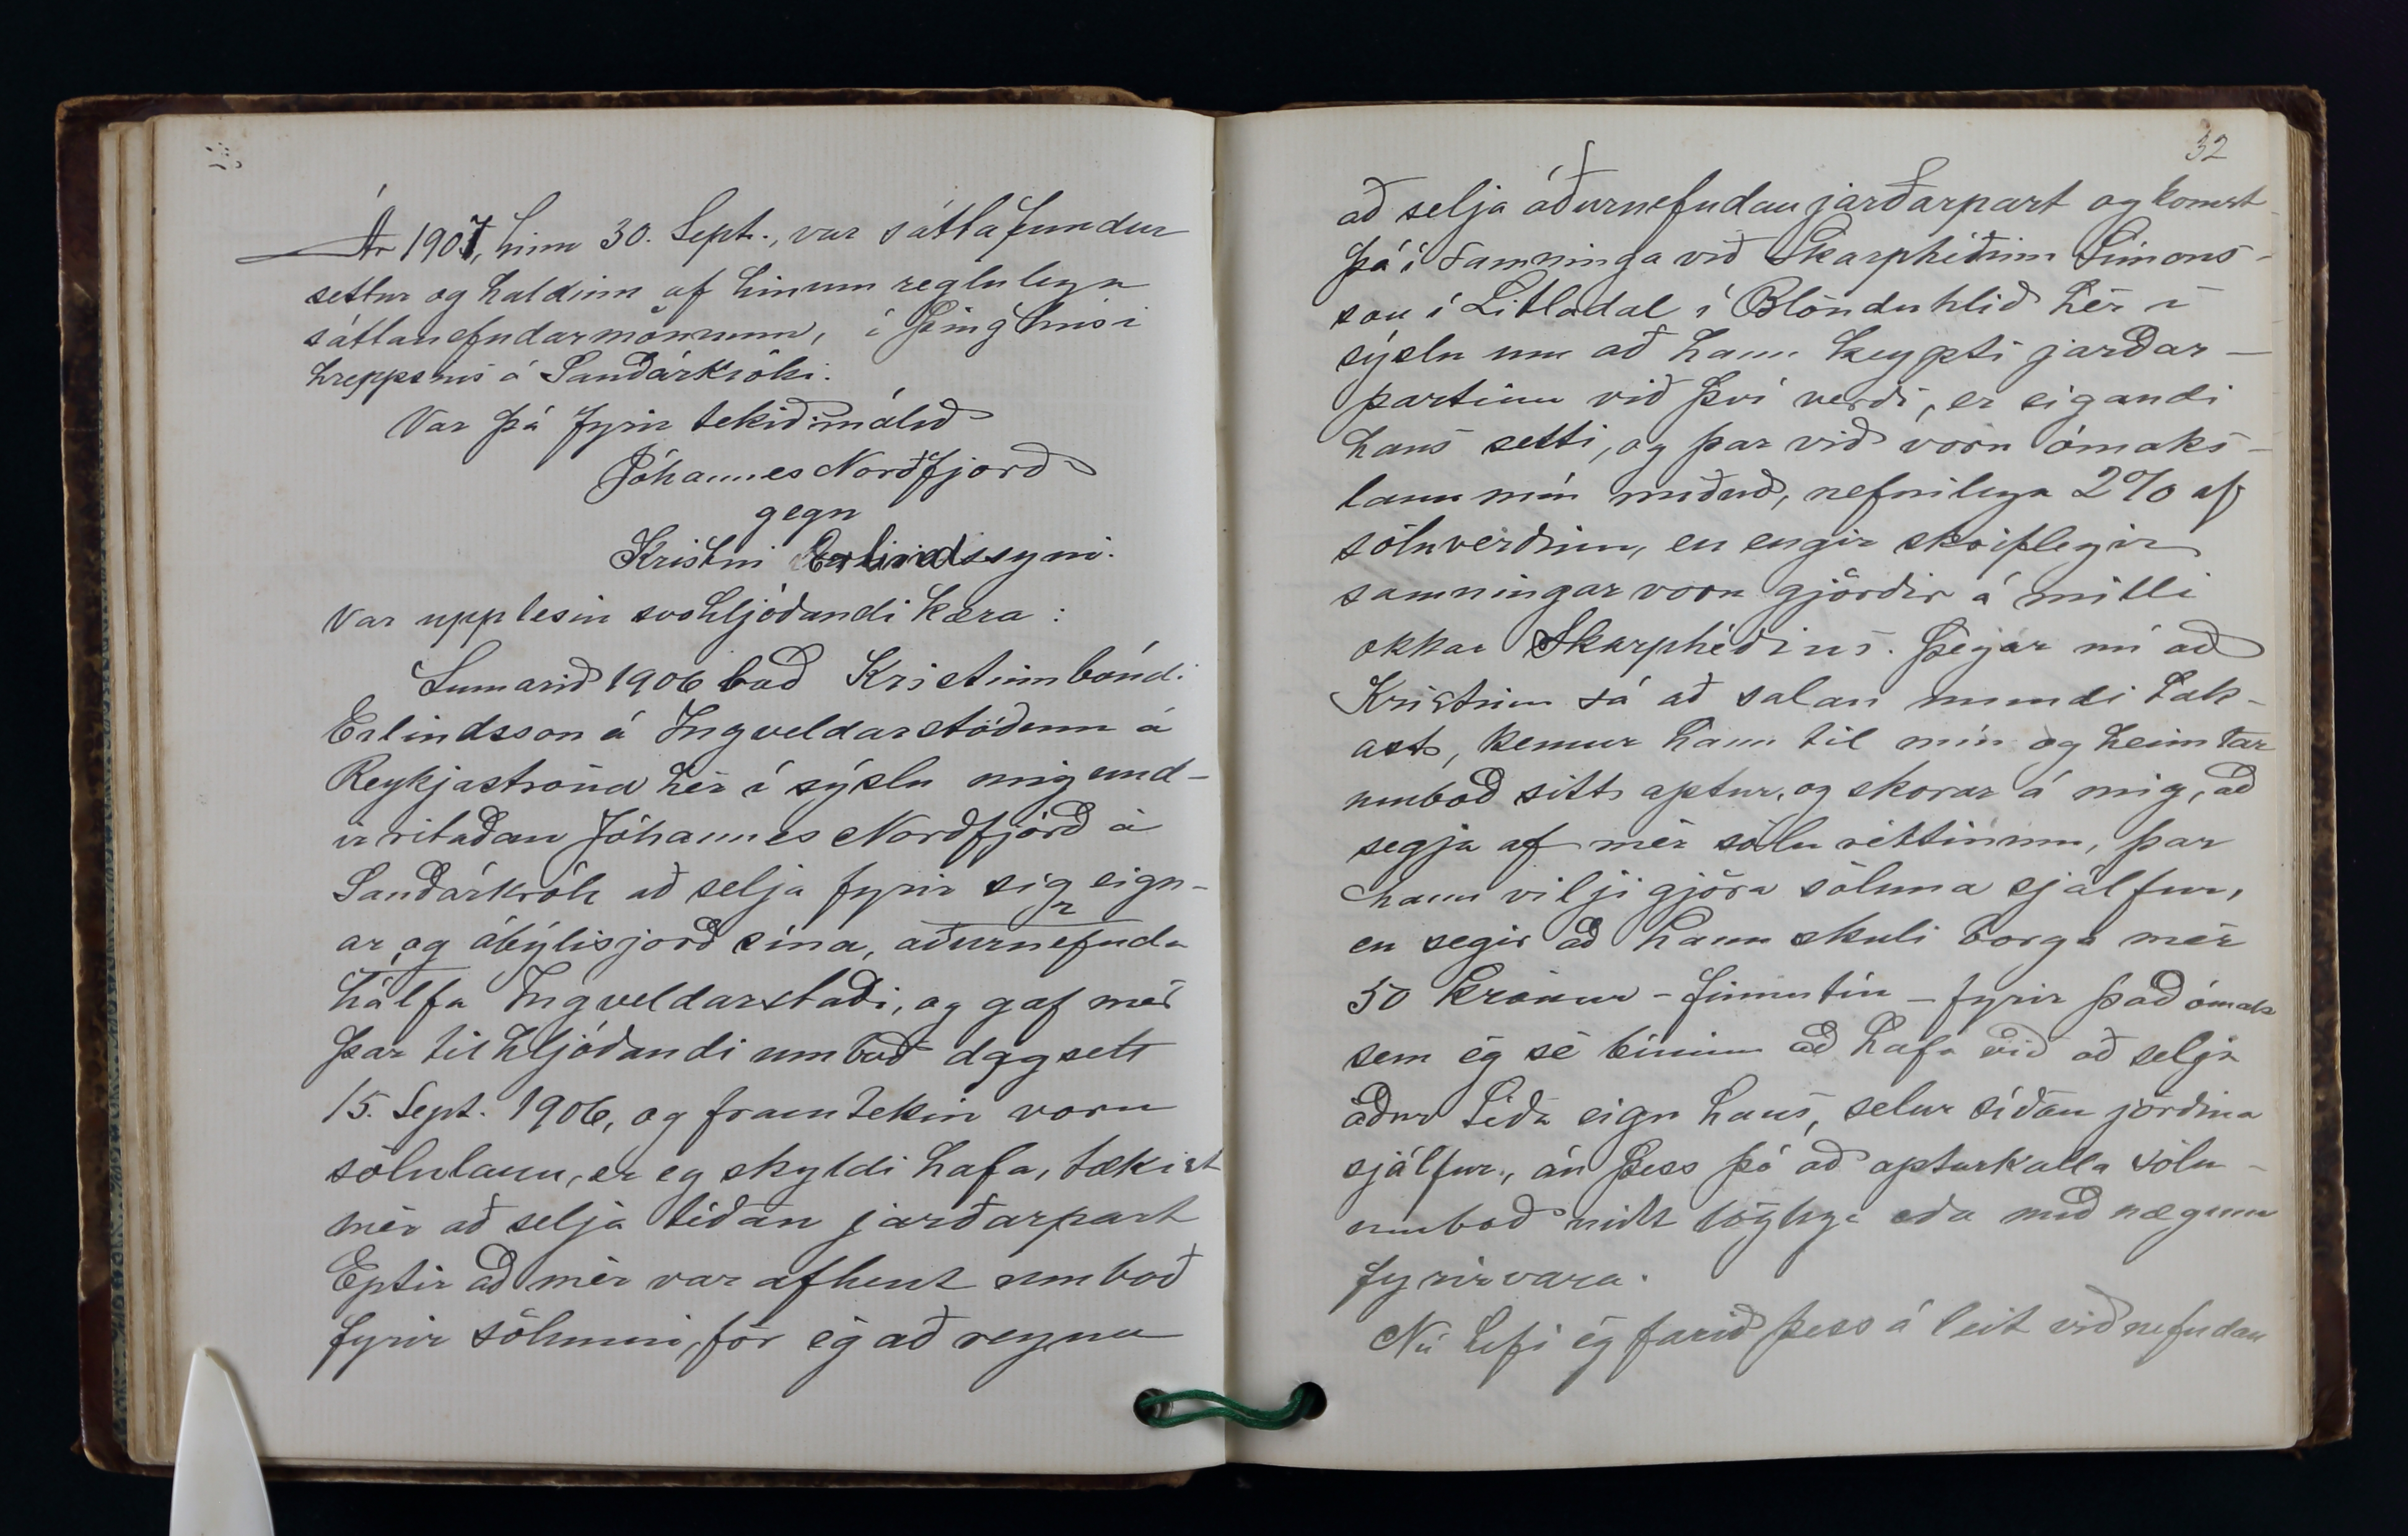 Ár 1907, hinn 30. Sept., var sáttafundur
settur og haldinn af hinum reglulegu
sáttanefndarmönnum, í Þinghúsi
hreppsins á Sauðárkróki.
Var þá fyrir tekið málið
Jóhannes Norðfjörð
gegn
Kristni Erlindssyni.
Var upp lesin svohljóðandi kæra:
Sumarið 1906 bað Kristinn bóndi
Erlindsson á Ingveldarstöðum á
Reykjaströnd hér í sýslu mig und-
irritaðan Jóhannes Norðfjörð á
Sauðárkrók að selja fyrir sig eign-
ar og ábýlisjörð sína, aðurnefnda
hálfa Ingveldarstaði, og gaf mér
þar til hljóðandi umboð dagsett
15. Sept. 1906, og framtekin voru
sölulaun, er eg skyldi hafa, tækist
mér að selja téðan jarðarpart
Eptir að mér var afhent umboð
fyrir sölunni, fór ég að reyna
32
að selja áðurnefndan jarðarpart og komst
þá í samninga við Skarphéðinn Símons-
son í Litladal í Blönduhlíð hér í
sýslu um að hann keypti jarðar-
partinn við því verði, er eigandi
hans setti, og þar við voru ómaks-
laun mín miðuð, nefnilega 2% af
söluverðinu, en engir skriflegir
samningar voru gjörðir á milli
okkar Skarphéðins. Þegar nú að
Kristinn sá að salan mundi tak-
ast, kemur hann til mín og heimtar
umboð sitt aptur, og skorar á mig, að
segja af mér sölu réttinum, þar
hann vilji gjöra söluna sjálfur,
en segir að hann skuli borga mér
50 krónur - fimmtíu - fyrir það ómak
sem ég sé búinn að hafa við að selja
áður téða eign hans, selur síðan jörðina
sjálfur, án þess þó að apturkalla sölu-
umboð mitt löglega eða með nægum
fyrirvara.
Nú hefi ég farið þess á leit við nefndan